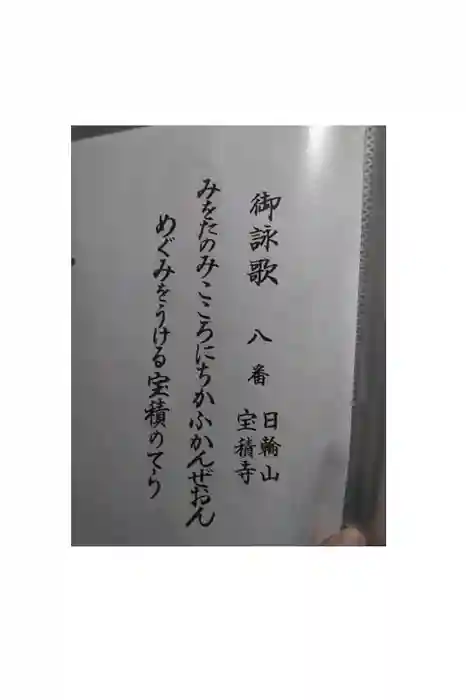 御詠歌 八番 日輪山
宝積寺
みをたのみこころにちかふかんぜおん
めぐみをうける宝積のてら